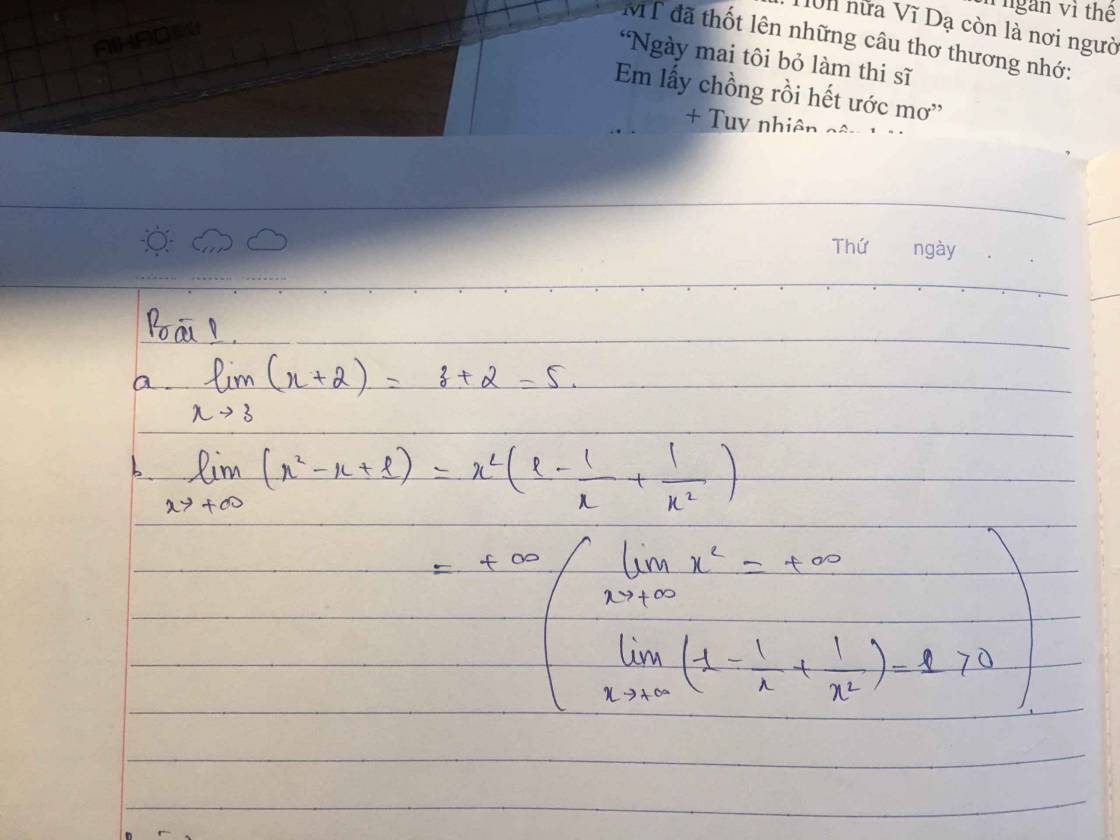 AIHAO
ngắn vì thế
nữa Vĩ Dạ còn là nơi ngườ
MT đã thốt lên những câu thơ thương nhớ:
“Ngày mai tôi bỏ làm thi sĩ
Em lấy chồng rồi hết ước mơ”
+ Tuy nhiên câu
Thứ ngày . .
Bài 1.
a. lim (x+2) = 3+2 = 5.
x→3
b. lim (x² - x + 1) = x² (1 - 1/x + 1/x²)
x→+∞
= +∞ ( lim x² = +∞
x→+∞
lim (1 - 1/x + 1/x²) = 1 > 0 ).
x→+∞